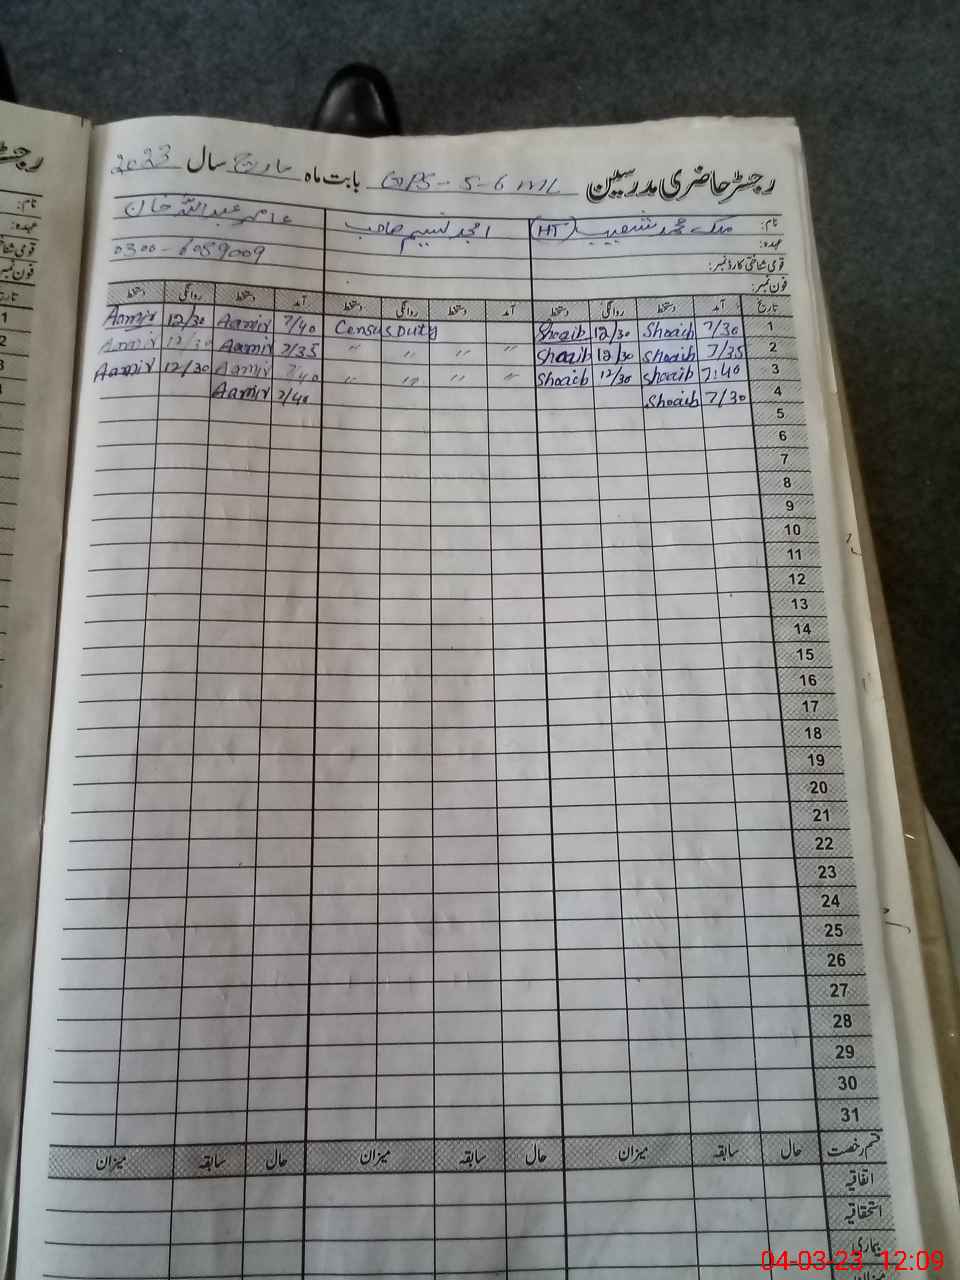 رجسٹر حاضری مدرسین GPS - 5-6 ML بابت ماہ مارچ سال 2023
نام: ملک محمد شعیب (HT) امجد نسیم صاحب عامر عبداللہ خان
عہدہ:
قومی شناختی کارڈ نمبر: 0300-6059009
فون نمبر:
تاریخ آمد دستخط روانگی دستخط آمد دستخط روانگی دستخط آمد دستخط روانگی دستخط
1 7/30 Shoaib 12/30 Shoaib Census Duty 7/40 Aamir 12/30 Aamir
2 7/35 Shoaib 12/30 Shoaib " " " " 7/35 Aamir 12/30 Aamir
3 7:40 Shoaib 12/30 Shoaib " " " " 7/40 Aamir 12/30 Aamir
4 7/30 Shoaib 7/40 Aamir
5
6
7
8
9
10
11
12
13
14
15
16
17
18
19
20
21
22
23
24
25
26
27
28
29
30
31
قسم رخصت حال سابقہ میزان حال سابقہ میزان حال سابقہ میزان
اتفاقیہ
استحقاقیہ
بیماری
میزان
04-03-23 12:09